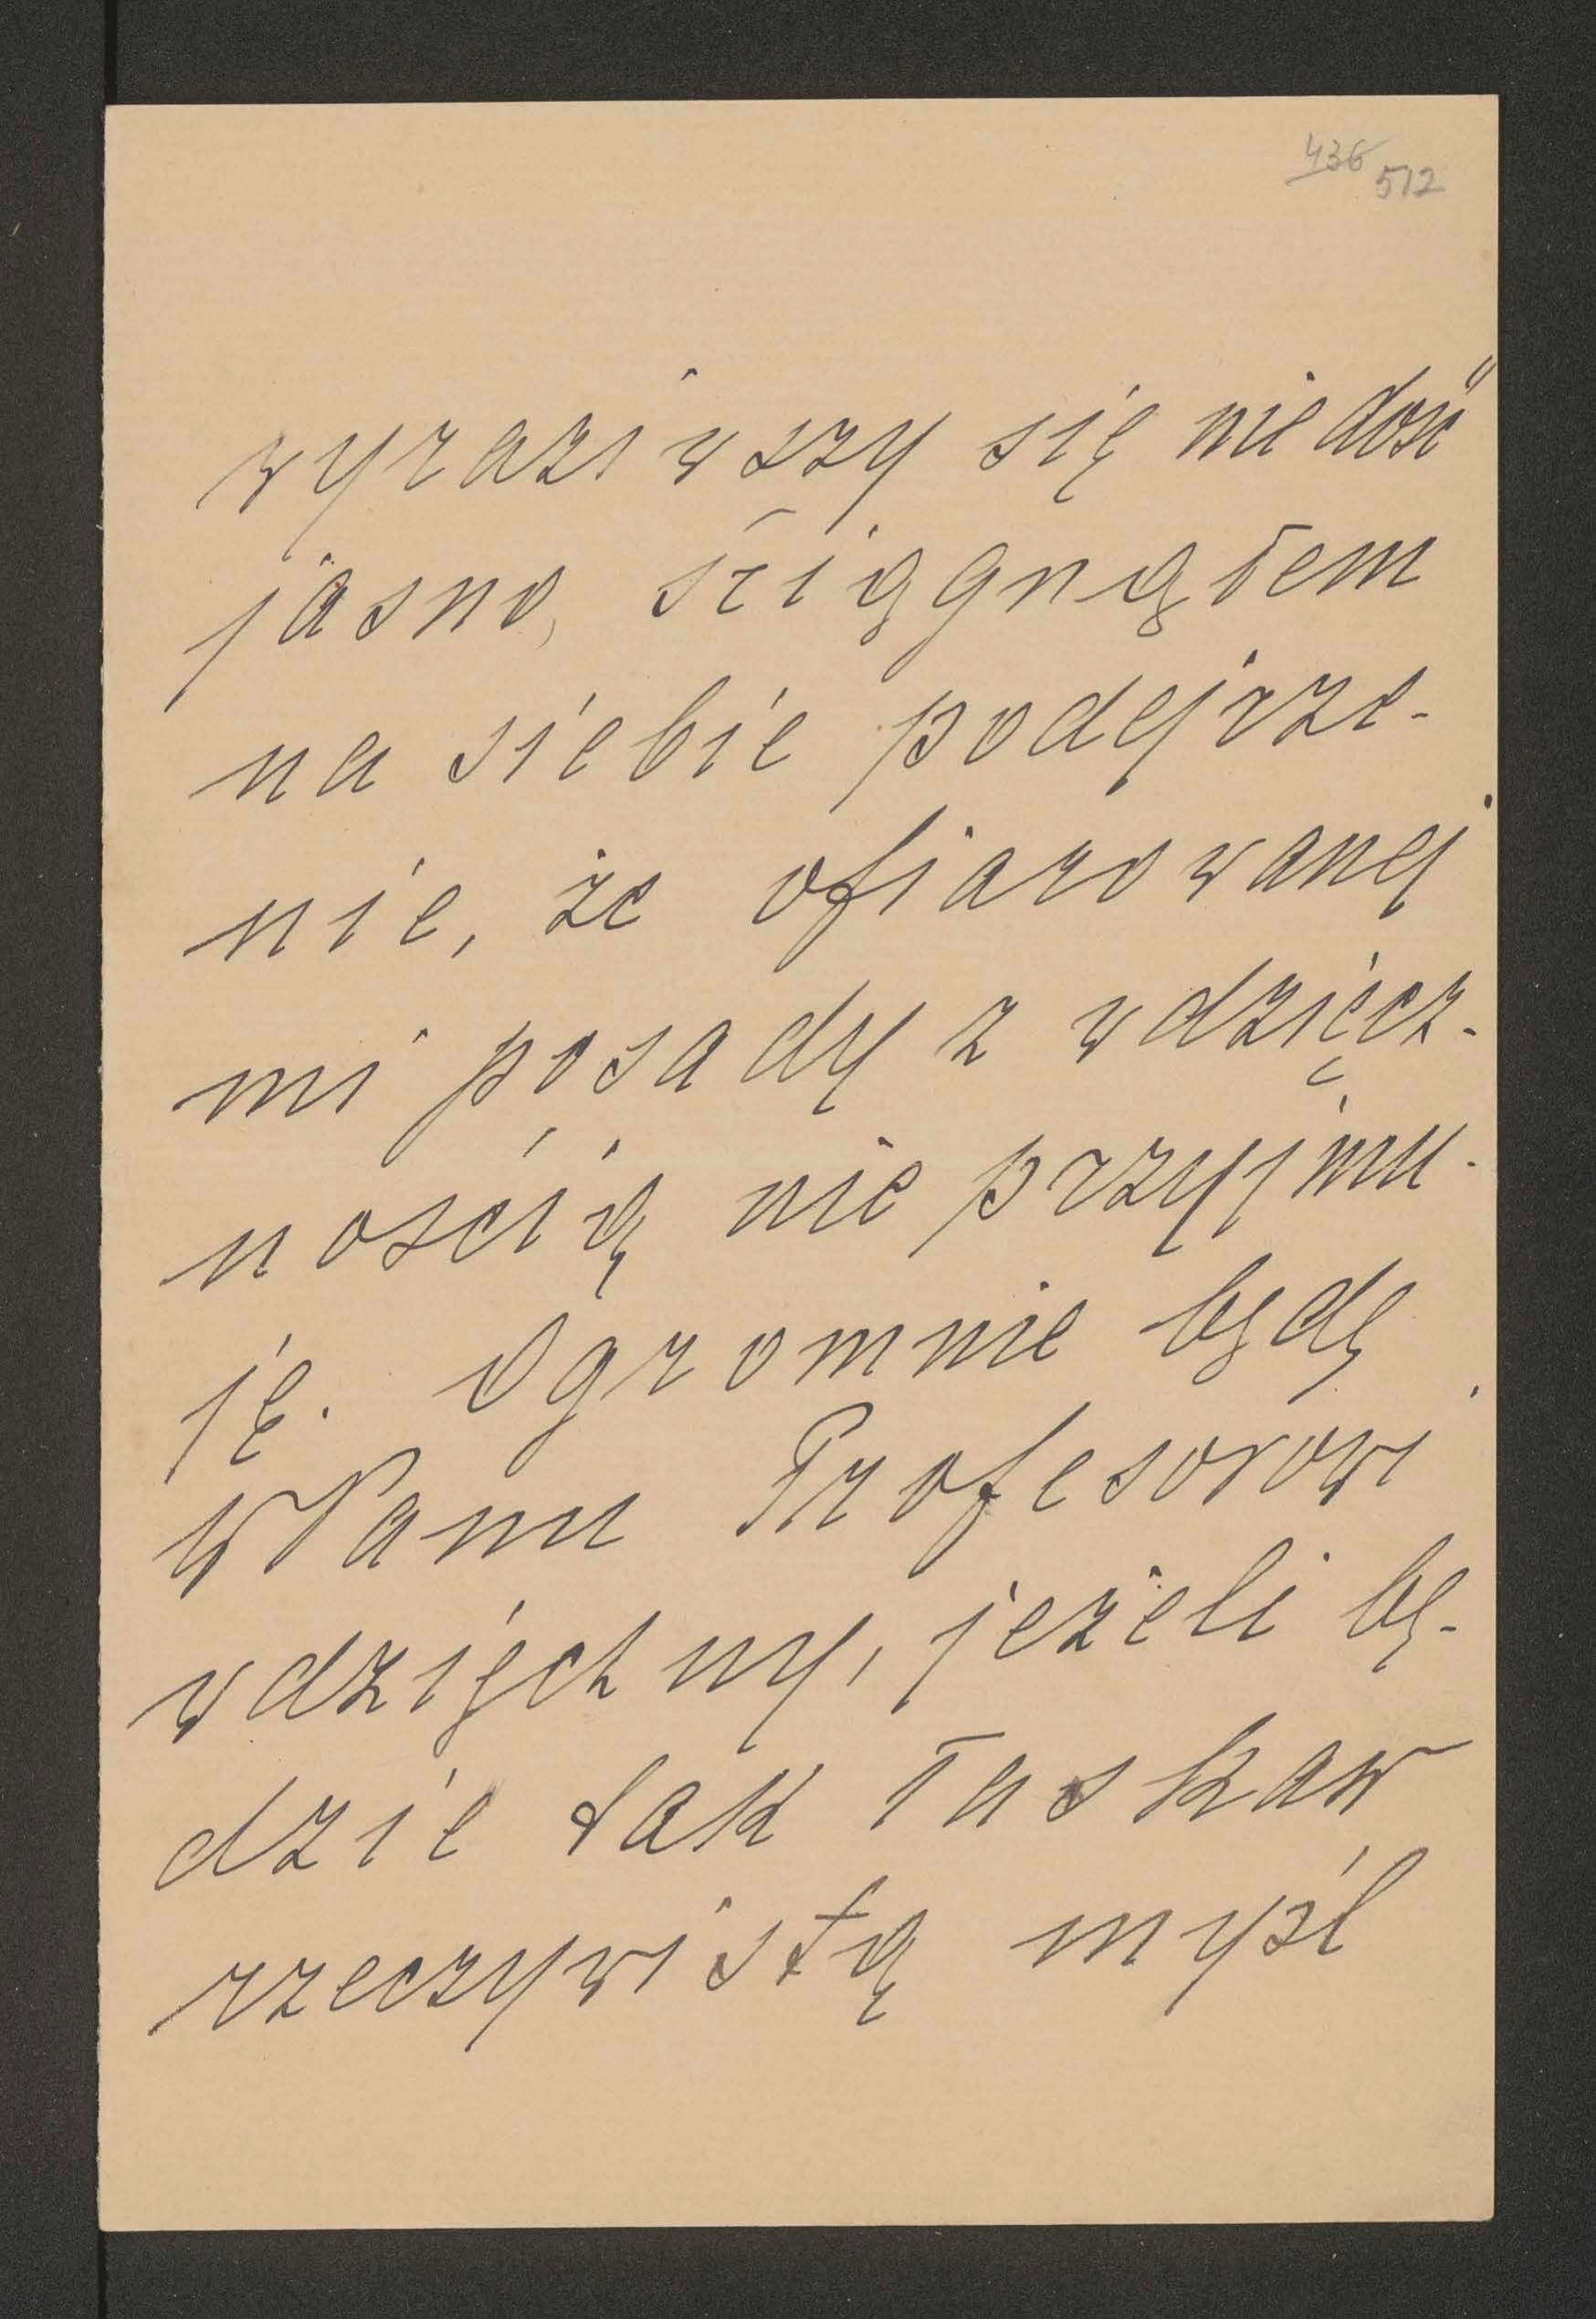 436
512
wyraziwszy się nie dość
jasno, sciągnąłem
na siebie podejrze-
nie, że ofiarowanej
mi posady z wdzięcz-
nością nie przyjmu-
ję. Ogromnie będę
WPanu Profesorowi
wdzięczny, jeżeli bę-
dzie tak łaskaw
rzeczywistą myśl